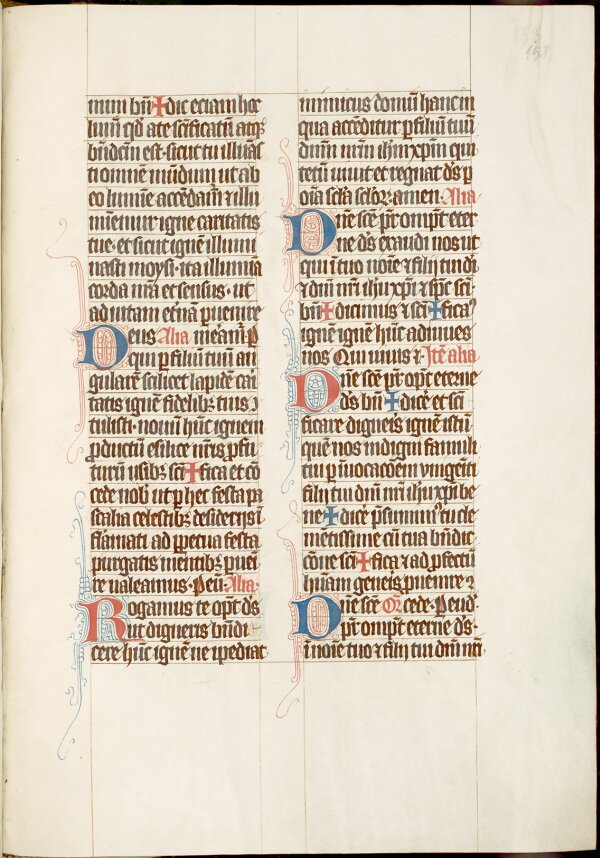 158
mum bn̄✝dic eciam hoc
lumē qd̄ a te sc̄ificatū atqꝫ
bn̄dcm̄ est· sicut tu illuīas
ti omnē mūdum· ut ab
eo lumīe accēdam᷒ ⁊ illu
minemur igne caritatis
tue· et sicut ignē illumi
nasti moysi· ita illumīa
corda nr̄a et sensus· ut
ad uitam et̄na ꝑuenire
Deus Alia mēam᷒ p
qui ꝑ filiū tuū an
gularē scilicet lapidē cari
tatis ignē fidelibꝫ tuis ī
tulisti· nouū hūc ignem
ꝓductū e silice nr̄is ꝓfu
turū usibꝫ sc̄i✝fica et cō
cede nob̄ ut ꝑ hec festa pa
scalia celestibꝫ desiderijs ī
flamari· ad ꝑpetua festa
purgatis mentibꝫ ꝑuei
re ualeamus· Peū· Alia·
Rogamus te opt̄ ds̄
ut digneris bn̄di
cere hūc ignē ne īpediat
inimicus domū hanc in
qua accēditur ꝑ filiū tuū
dn̄m nr̄m ihm̄ xp̄m qui
tecū uiuit et regnat ds̄ ꝑ
oīa scl̄a scl̄oꝝ· amen· Alia
Dn̄e sc̄e pr̄ omp̄t eter
ne ds̄ exaudi nos ut
qui ī tuo noīe ⁊ filij tui dī
⁊ dn̄i nr̄i ihu xp̄i ⁊ sp̄c sc̄i·
bn̄✝dicimus ⁊ sc̄i✝fica᷒
ignē ignē hūc adiuues
nos Qui uiuis ⁊· Itē alia
Dn̄e sc̄e pr̄· opt̄ eterne
ds̄ bn̄✝dicē et sc̄i
ficare digneis ignē istū
quē nos indigni famuli
tui ꝑ īuocacōem vnigeiti
filij tui dn̄i nr̄i ihu xp̄i be
ne✝dicē p̄sumim᷒ tu cle
mētissime cū tua bn̄dic
cōne sc̄i✝fica ⁊ ad ꝓfectū
hūam geneis ꝑuenire ⁊
Dn̄e sc̄e Or̄ cede· Peud·
pr̄ omp̄t eterne ds̄·
ī noīe tuo ⁊ filij tui dn̄i nr̄i